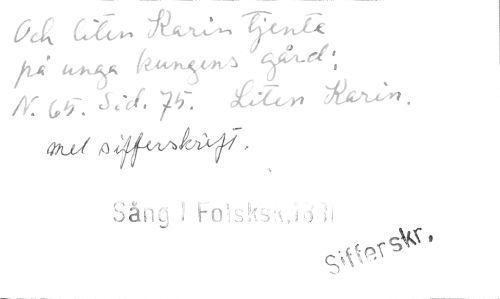 Och liten Karin tjenta
på unga kungens gård;
N. 65. Sid. 75. Liten Karin.
med sifferskrift.
Sång I Folsksk.
Sifferskr.